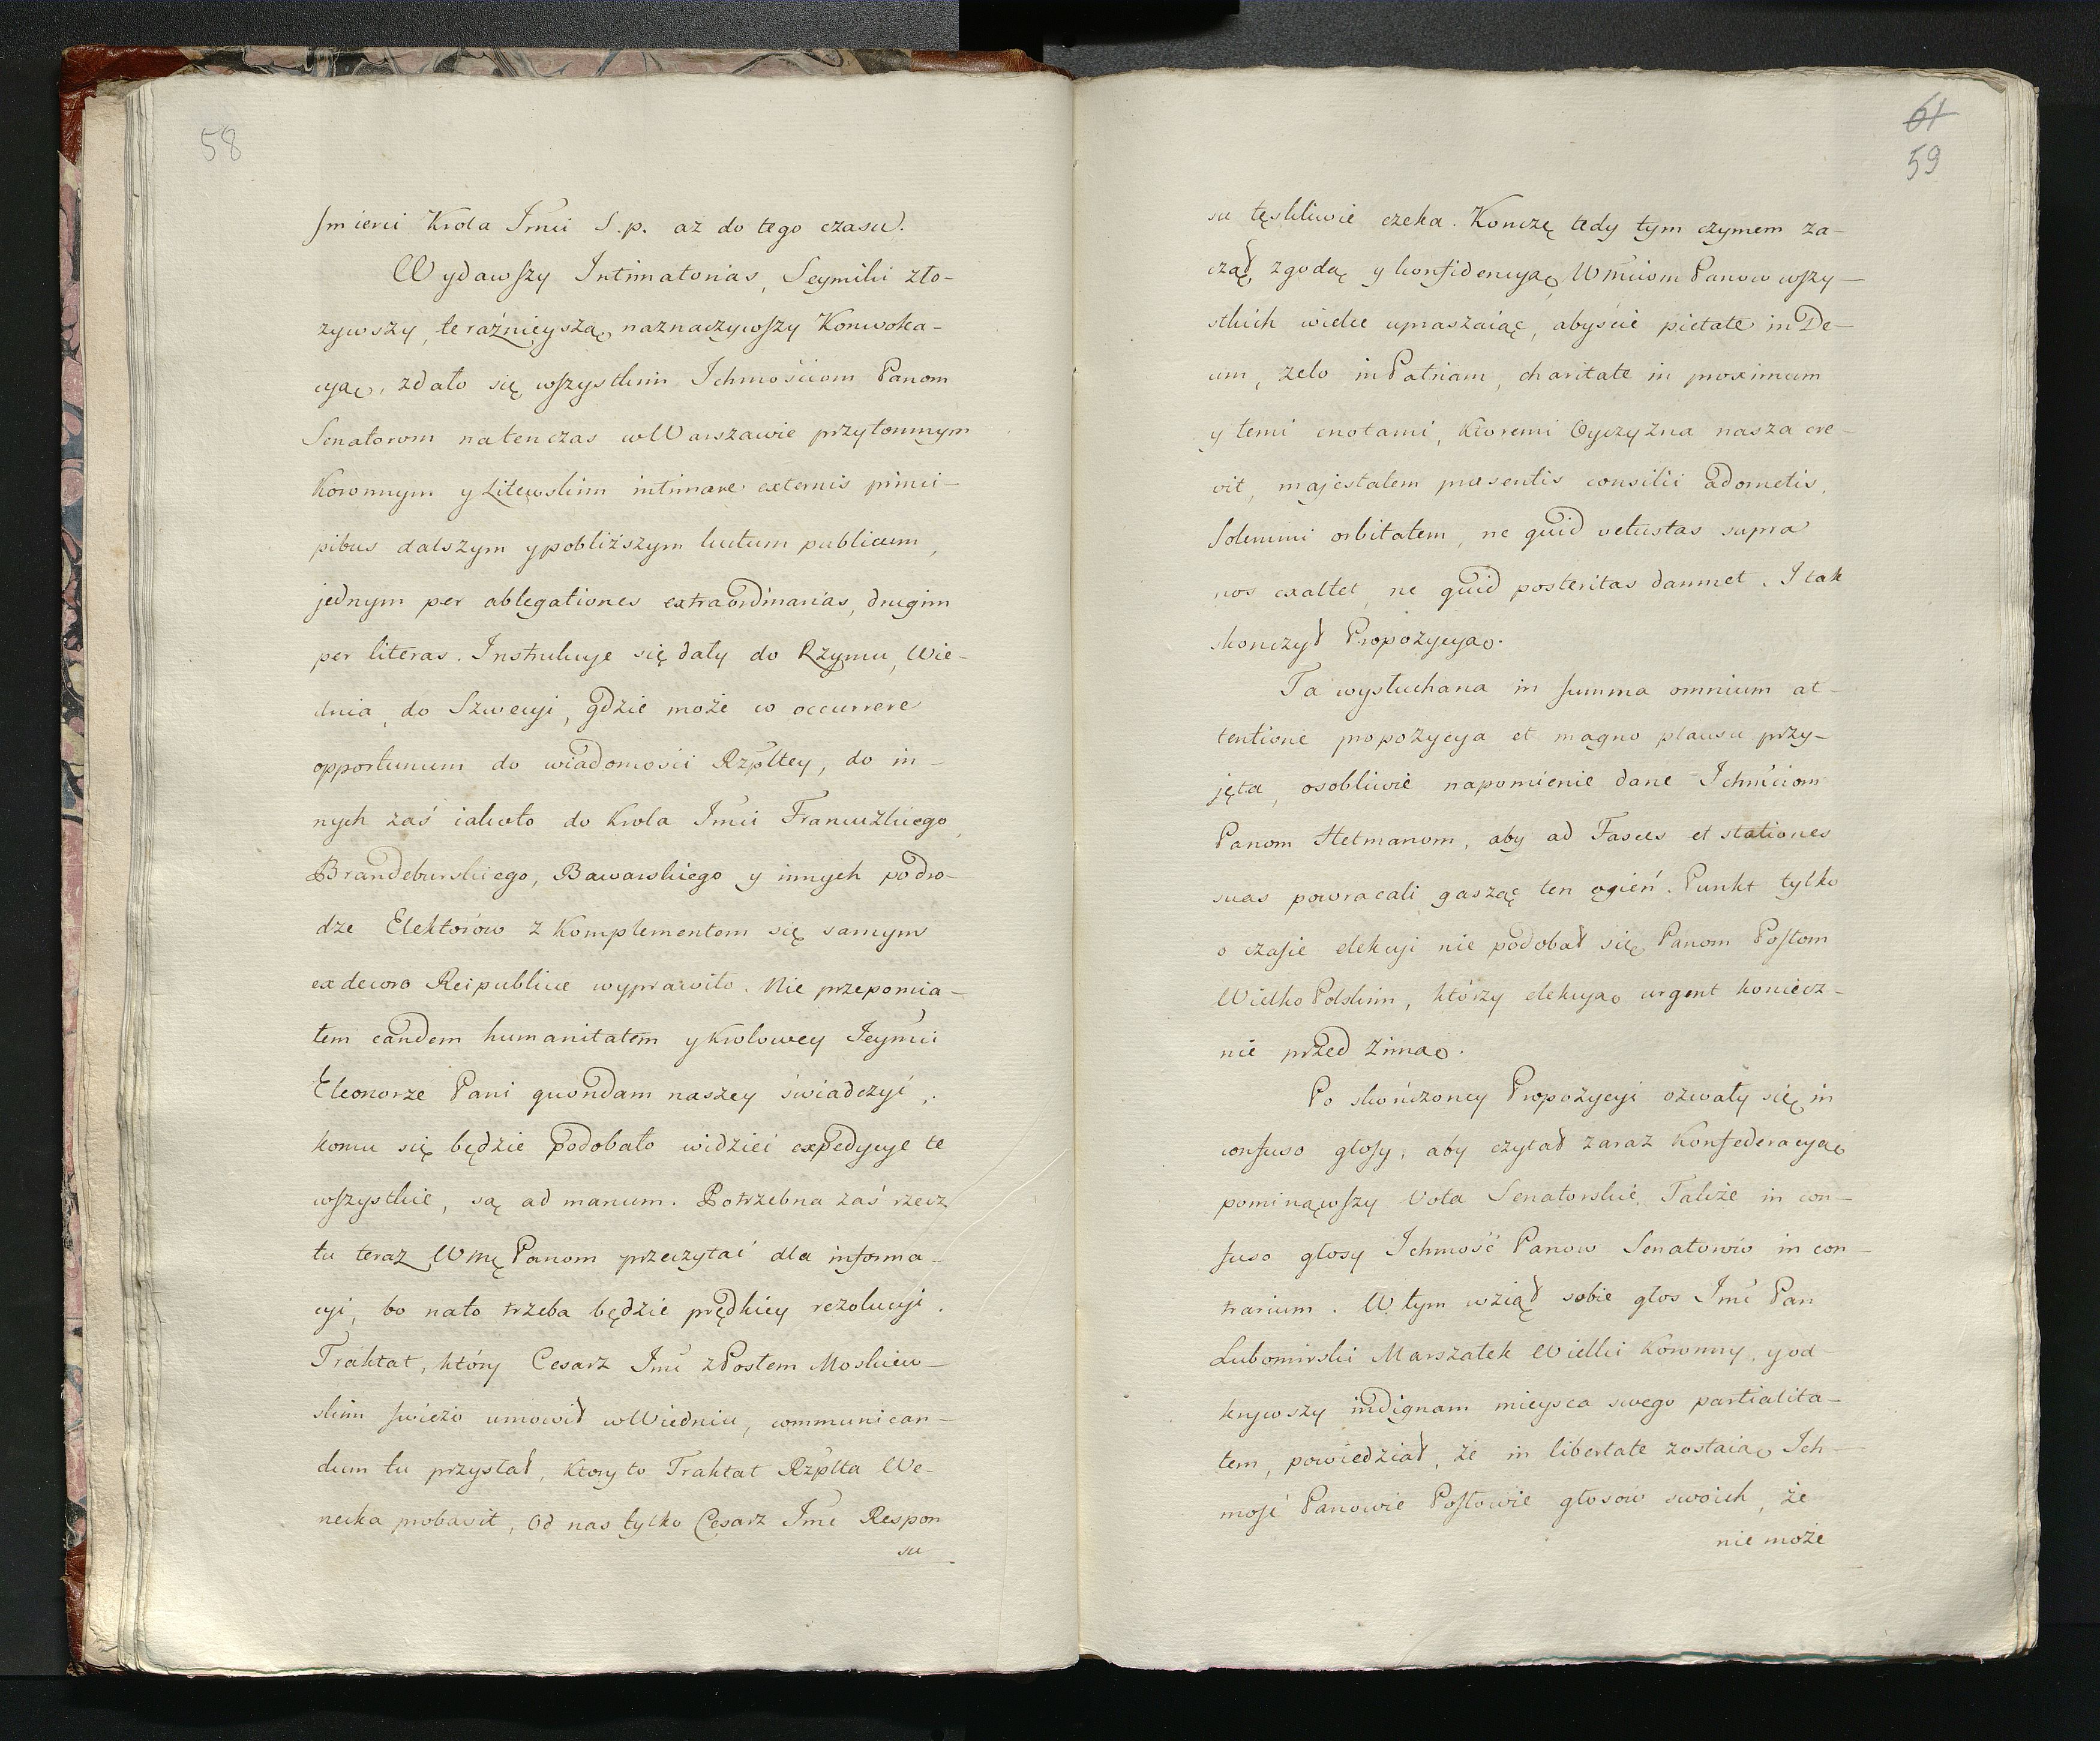 58
Smierci Krola Jmci S.p. aż do tego czasu.
Wydawszy Intimatorias, Seymiki zło-
zywszy, teraźnieyszą naznaczywszy Konwoka-
cyą, zdało się wszystkim Ichmościom Panom
Senatorom natenczas w Warszawie przytomnym
Koronnym y Litewskim intimare externis princi-
pibus dalszym y pobliższym luctum publicum,
jednym per ablegationes extraordinarias, drugim
per literas. Instrukcye się dały do Rzymu, Wie-
dnia, do Szwecyi, gdzie może co occurrere
opportunum do wiadomości Rzpltey, do in-
nych zaś iakoto do Krola Jmci Francuzkiego,
Brandeburskiego, Bawarskiego y innych podro-
dze Elektorów z Komplementem się samym
ex decoro Reipublicae wyprawiło. Nie przepomia-
łem eandem humanitatem y Krolowey Jeymci
Eleonorze Pani quondam naszey świadczyć,
komu się będzie podobało widzieć expedycye te
wszystkie, są ad manum. Potrzebna zaś rzecz
tu teraz WMę Panom przeczytać dla informa-
cyi, bo nato trzeba będzie prędkiey rezolucyi.
Traktat, który Cesarz Jmć z Posłem Moskiew-
skim swieżo umowił w Wiedniu, communican-
dum tu przysłał, ktory to Traktat Rzplta We-
necka probavit, Od nas tylko Cesarz Jmć Respon
su
61
59
su tęskliwie czeka. Kończę tedy tym czymem za-
czął, zgodą y konfidencyą, WMciom Panow wszy-
stkich wielce upraszaiąc, abyście pietate in De-
um, zelo in Patriam, charitate in proximum
y temi cnotami, ktoremi Oyczyzna nasza cre-
vit, majestatem praesentis consilii adornetis,
Solemni orbitatem, ne quid vetustas supra
nos exaltet, ne quid posteritas damnet. I tak
skonczył Propozycyą.
Ta wysłuchana in summa omnium at-
tentione propozycya et magno plausu przy-
jęta, osobliwie napomienie dane Ichmciom
Panom Hetmanom, aby ad Fasces et stationes
suas powracali gasząc ten ogień. Punkt tylko
o czasie elekcyi nie podobał się Panom Posłom
Wielko Polskim, którzy elekcyą urgent koniecz-
nie przed zimą.
Po skończoney Propozycyi ozwały się in
confuso głosy, aby czytał zaraz Konfederacyą
pominąwszy Vota Senatorskie. Także in con-
fuso głosy Ichmość Panow Senatorów in con-
trarium. W tym wziął sobie głos Jmć Pan
Lubomirski Marszałek Wielki Koronny, y od-
krywszy indignam mieysca swego partialita-
tem, powiedział, że in libertate zostaią Ich-
mość Panowie Posłowie głosów swoich, że
nie może